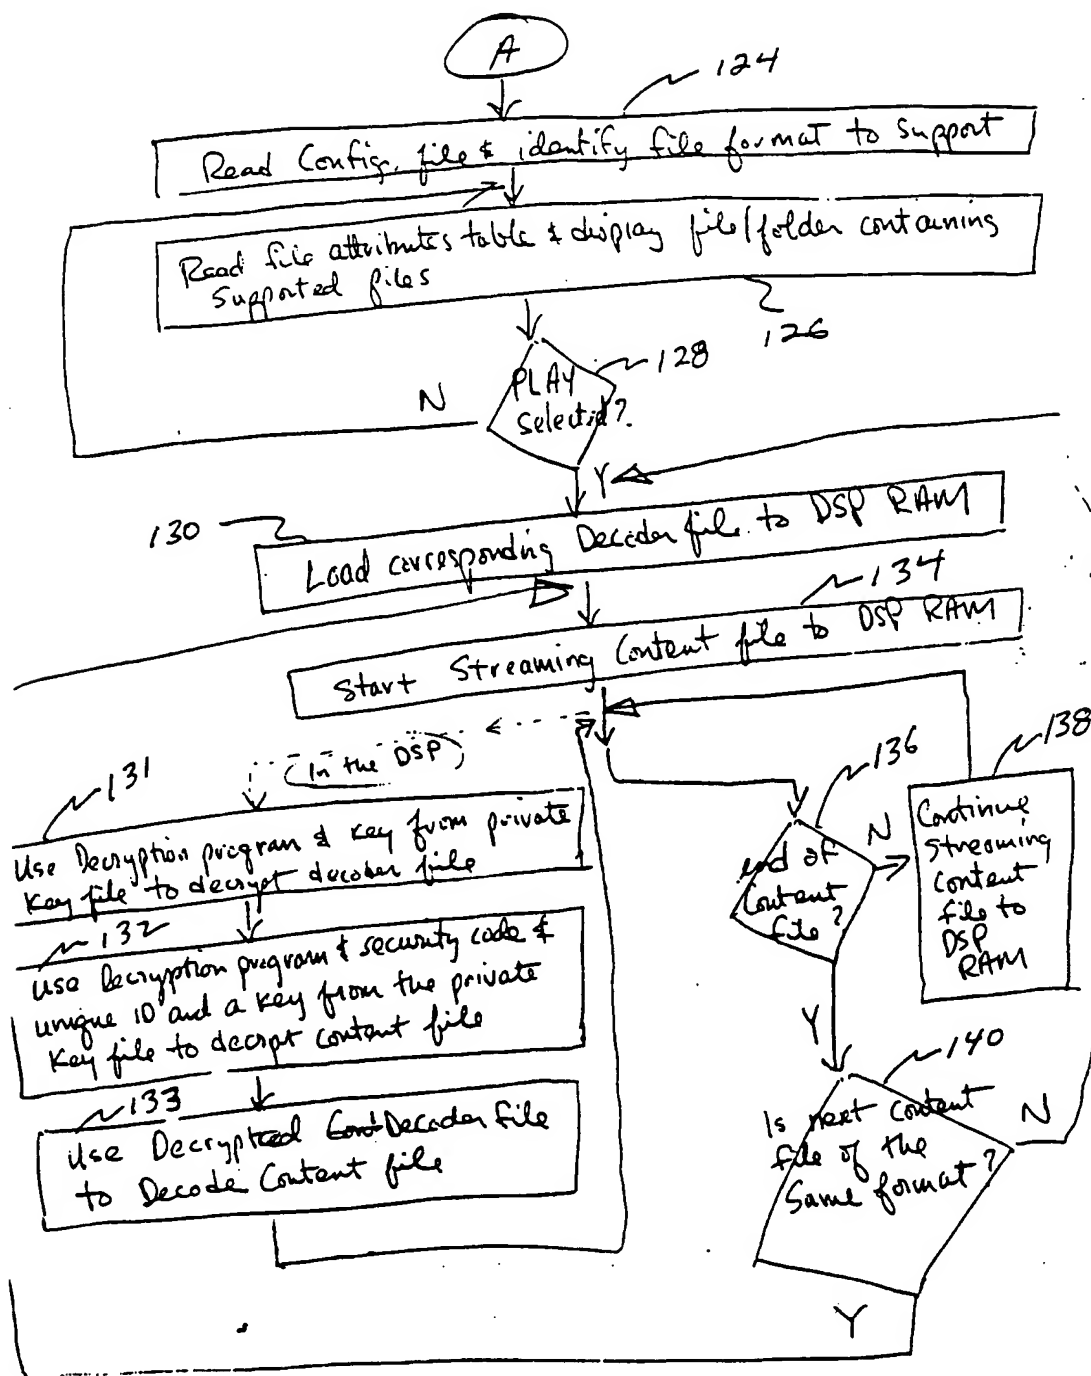 A
124
Read Config. file & identify file format to support
Read file attributes table & display file/folder containing
supported files
126
128
PLAY
selected?
N
Y
130
Load corresponding Decoder file to DSP RAM
134
Start Streaming Content file to DSP RAM
(In the DSP)
131
Use Decryption program & key from private
key file to decrypt decoder file
132
use Decryption program & security code &
unique ID and a key from the private
key file to decrpt content file
133
Use Decrypted Decoder file
to Decode Content file
136
end of
Content
file?
N
138
Continue
Streaming
content
file to
DSP
RAM
Y
140
Is next content
file of the
Same format?
N
Y